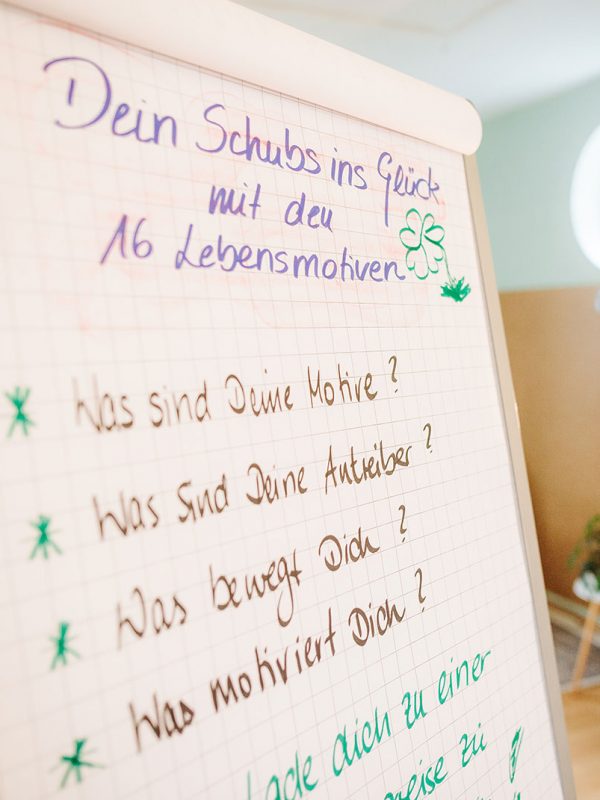 Dein Schubs ins Glück
mit den
16 Lebensmotiven
Was sind Deine Motive?
Was sind Deine Antreiber?
Was bewegt Dich?
Was motiviert Dich?
dich zu einer
zu